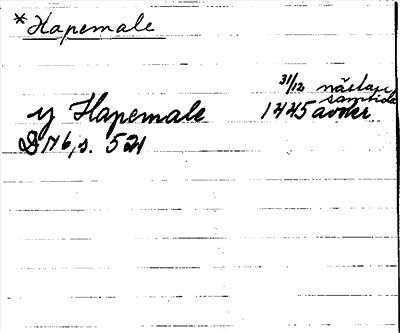 * Hapemale
31/12 nästan
samtida
y Hapemale 1445 avskr
D 176, s. 521